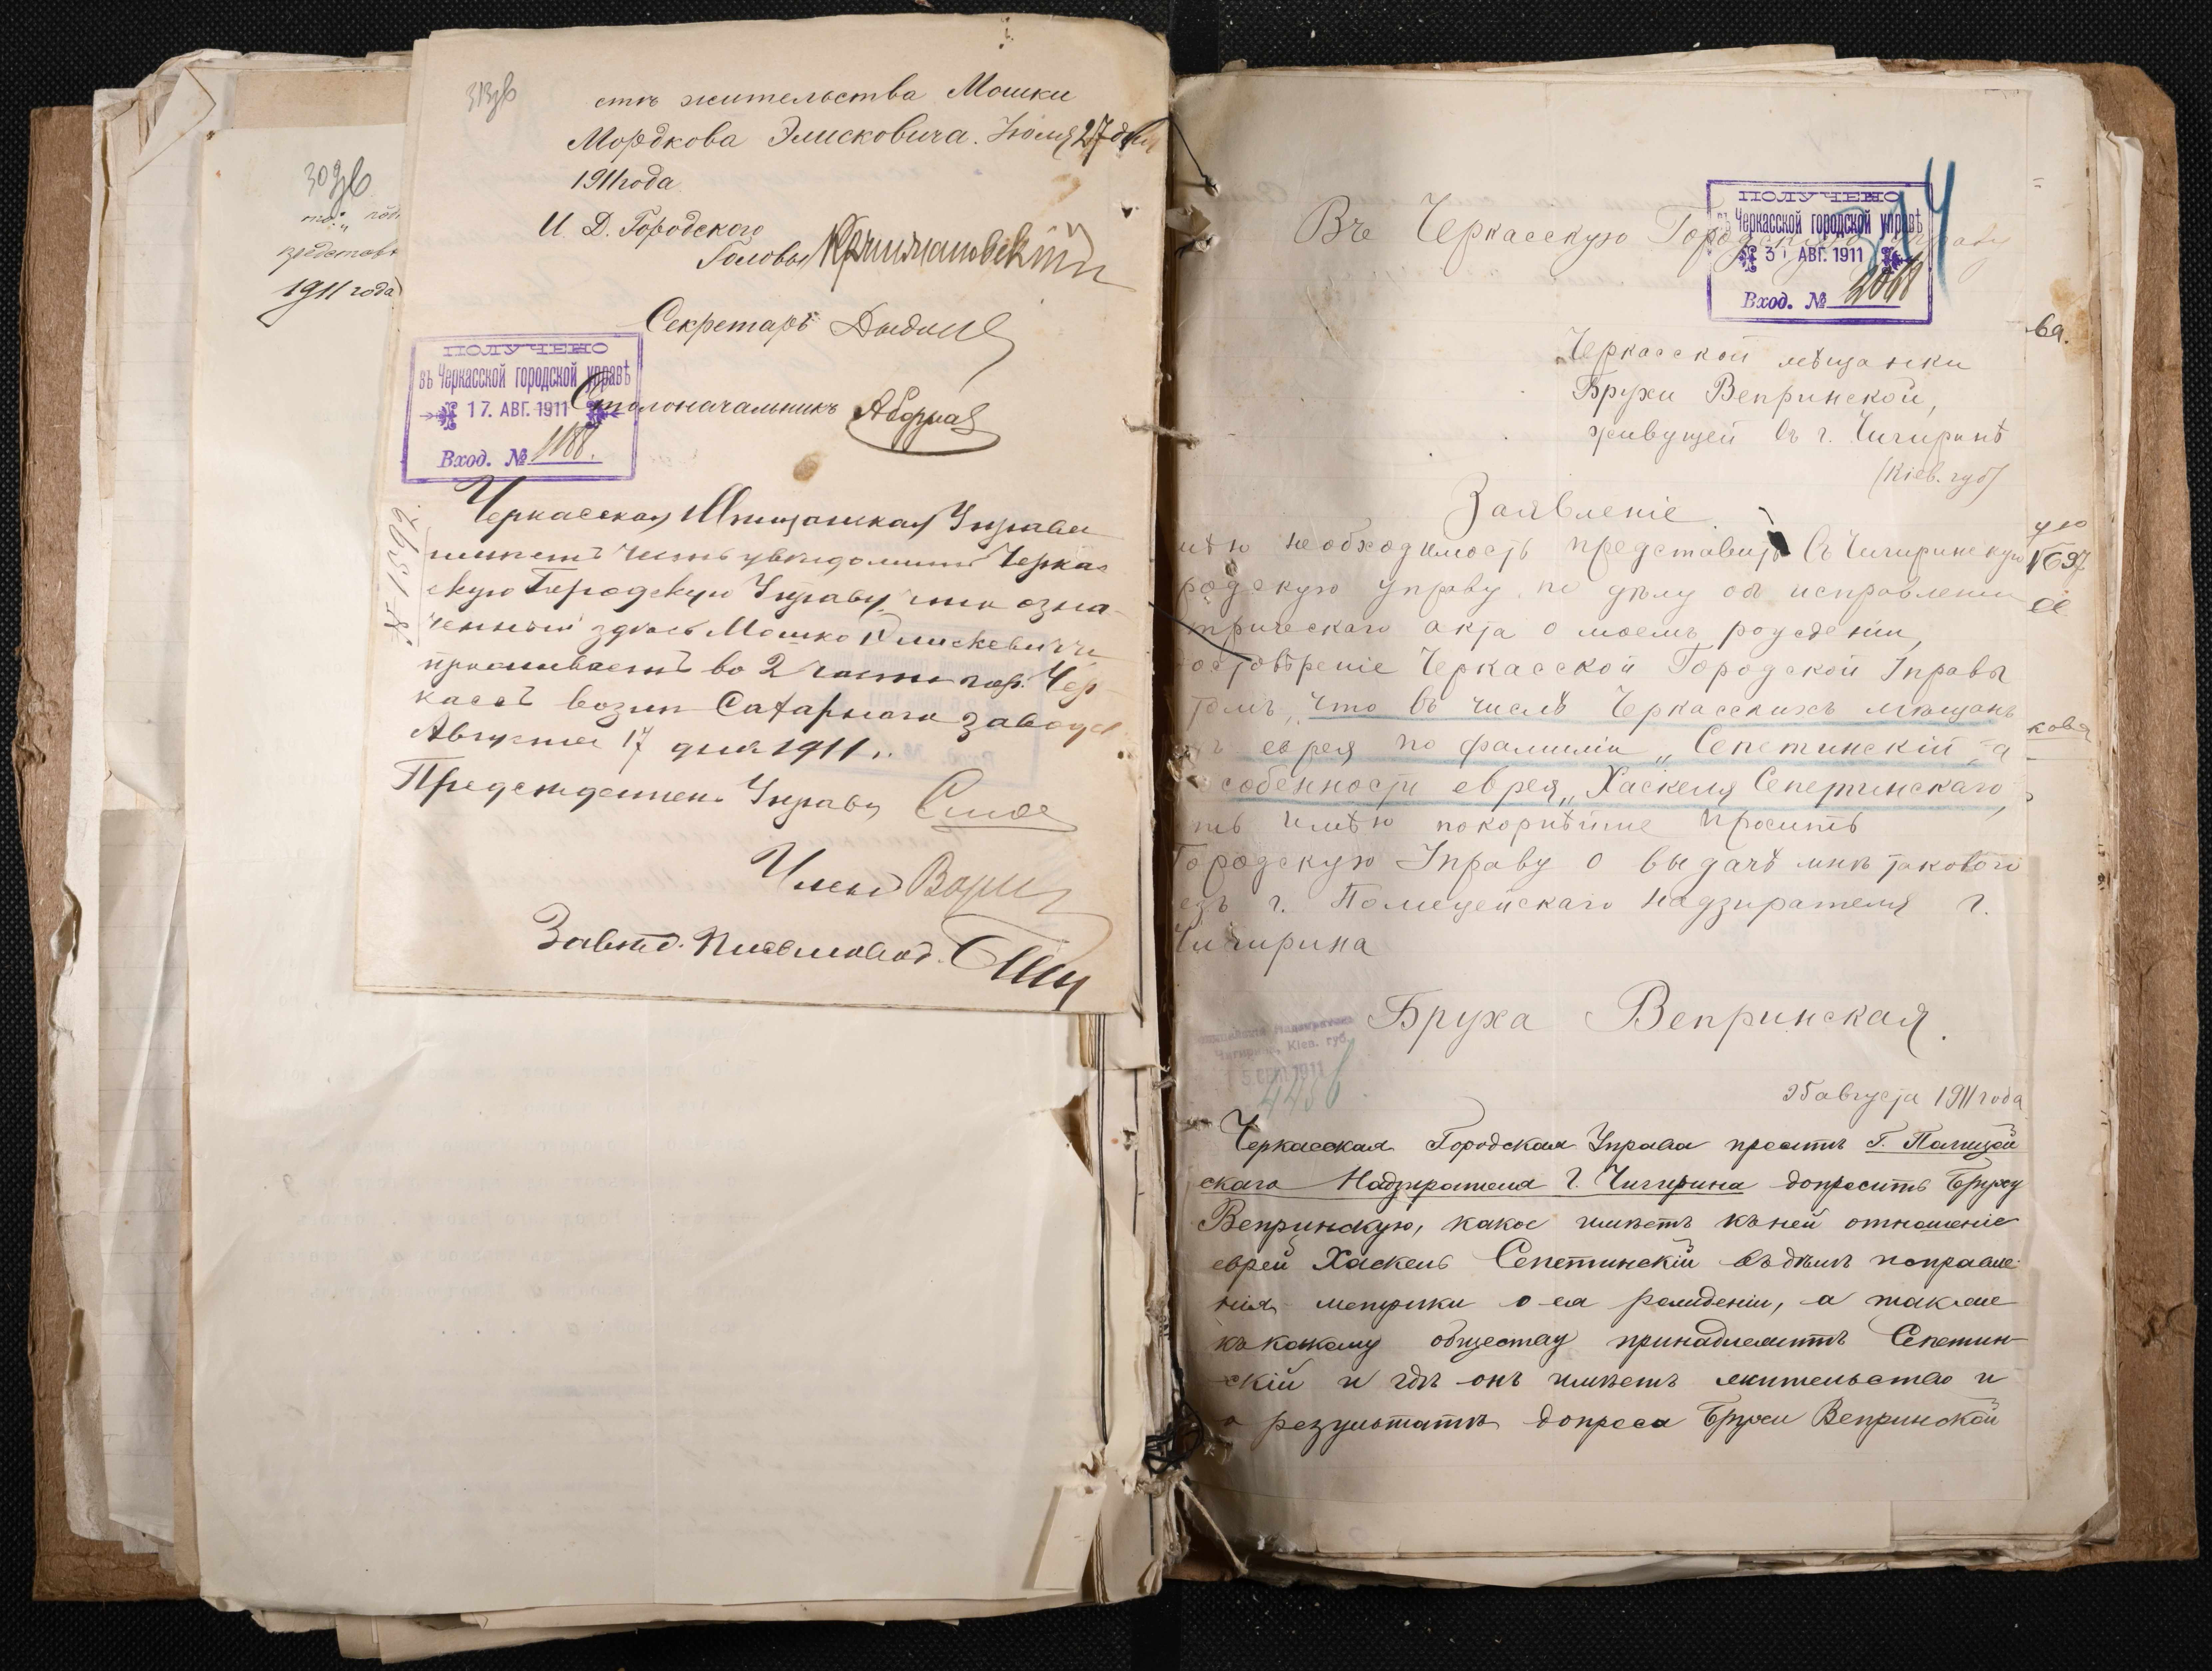 313об
стъ жительства Мошки
Мордкова Элисковича. Июля 27 дня
1911 года
И Д. Городского
Головы
Секретарь
ПОЛУЧЕНО
въ Черкасской городской управѣ
17. АВГ. 1911
Вход. № 1188.
Столоначальникъ
Черкасская Мѣщанская Управа
имѣетъ честь увѣдомить Черкас
скую Городскую Управу, что озна-
ченный здѣсь Мошко Элискевичъ
проживаетъ во 2 части гор. Чер-
кассъ возлѣ Сахарнаго завода
Августа 17 дня 1911 г.
Предсѣдатель Управы
Членъ
Завѣд. Письмовод.
309об
1911 года
314
Въ Черкасскую Городскую Управу
ПОЛУЧЕНО
въ Черкасской городской управѣ
31 АВГ. 1911
Вход. № 2068
Черкасской мѣщанки
Брухи Вепринской,
живущей въ г. Чигиринѣ
(Кіев. губ)
Заявленіе.
мѣю необходимость представить въ Чигиринскую
родскую управу, по дѣлу объ исправленіи
трическаго акта о моемъ рожденіи,
остовѣреніе Черкасской Городской Управы
томъ, что въ числѣ Черкасскихъ мѣщанъ
ѣтъ еврея по фамиліи „Сепетинскій", а
собенности еврея „Хаскеля Сепетинскаго
имѣю покорнѣйше просить
Городскую Управу о выдачѣ мнѣ таковаго
езъ г. Полицейскаго надзирателя г.
Чигирина
Бруха Вепринская.
Кіев. губ.
5 СЕН 1911
4456
25 августа 1911 года
Черкасская Городская Управа проситъ Г. Полицей
скаго Надзирателя г. Чигирина допросить Бруху
Вепринскую, какое имѣетъ къ ней отношеніе
еврей Хаскель Сепетинскій въ дѣлѣ поправле-
нія метрики о ея рожденіи, а также
къ какому обществу принадлежитъ Сепетин-
скій и гдѣ онъ имѣетъ жительство и
о результатѣ допроса Брухи Вепринской